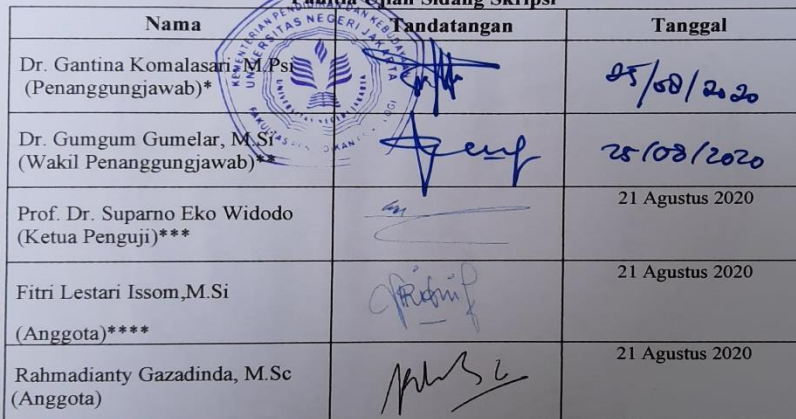 Panitia Ujian Sidang Skripsi
Nama Tandatangan Tanggal
Dr. Gantina Komalasari, M.Psi
(Penanggungjawab)* 25/08/2020
Dr. Gumgum Gumelar, M.Si
(Wakil Penanggungjawab)** 25/08/2020
Prof. Dr. Suparno Eko Widodo 21 Agustus 2020
(Ketua Penguji)***
Fitri Lestari Issom,M.Si 21 Agustus 2020
(Anggota)****
Rahmadianty Gazadinda, M.Sc 21 Agustus 2020
(Anggota)
KEMENTERIAN PENDIDIKAN DAN KEBUDAYAAN
UNIVERSITAS NEGERI JAKARTA